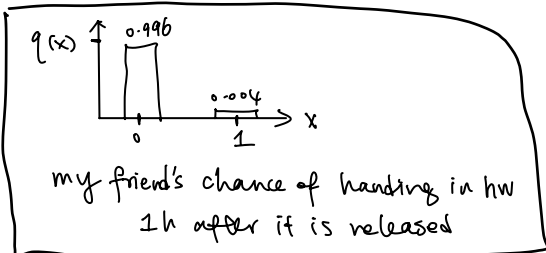 q(x)
0.996
0.004
x
0
1
my friend's chance of handing in hw
1h after it is released